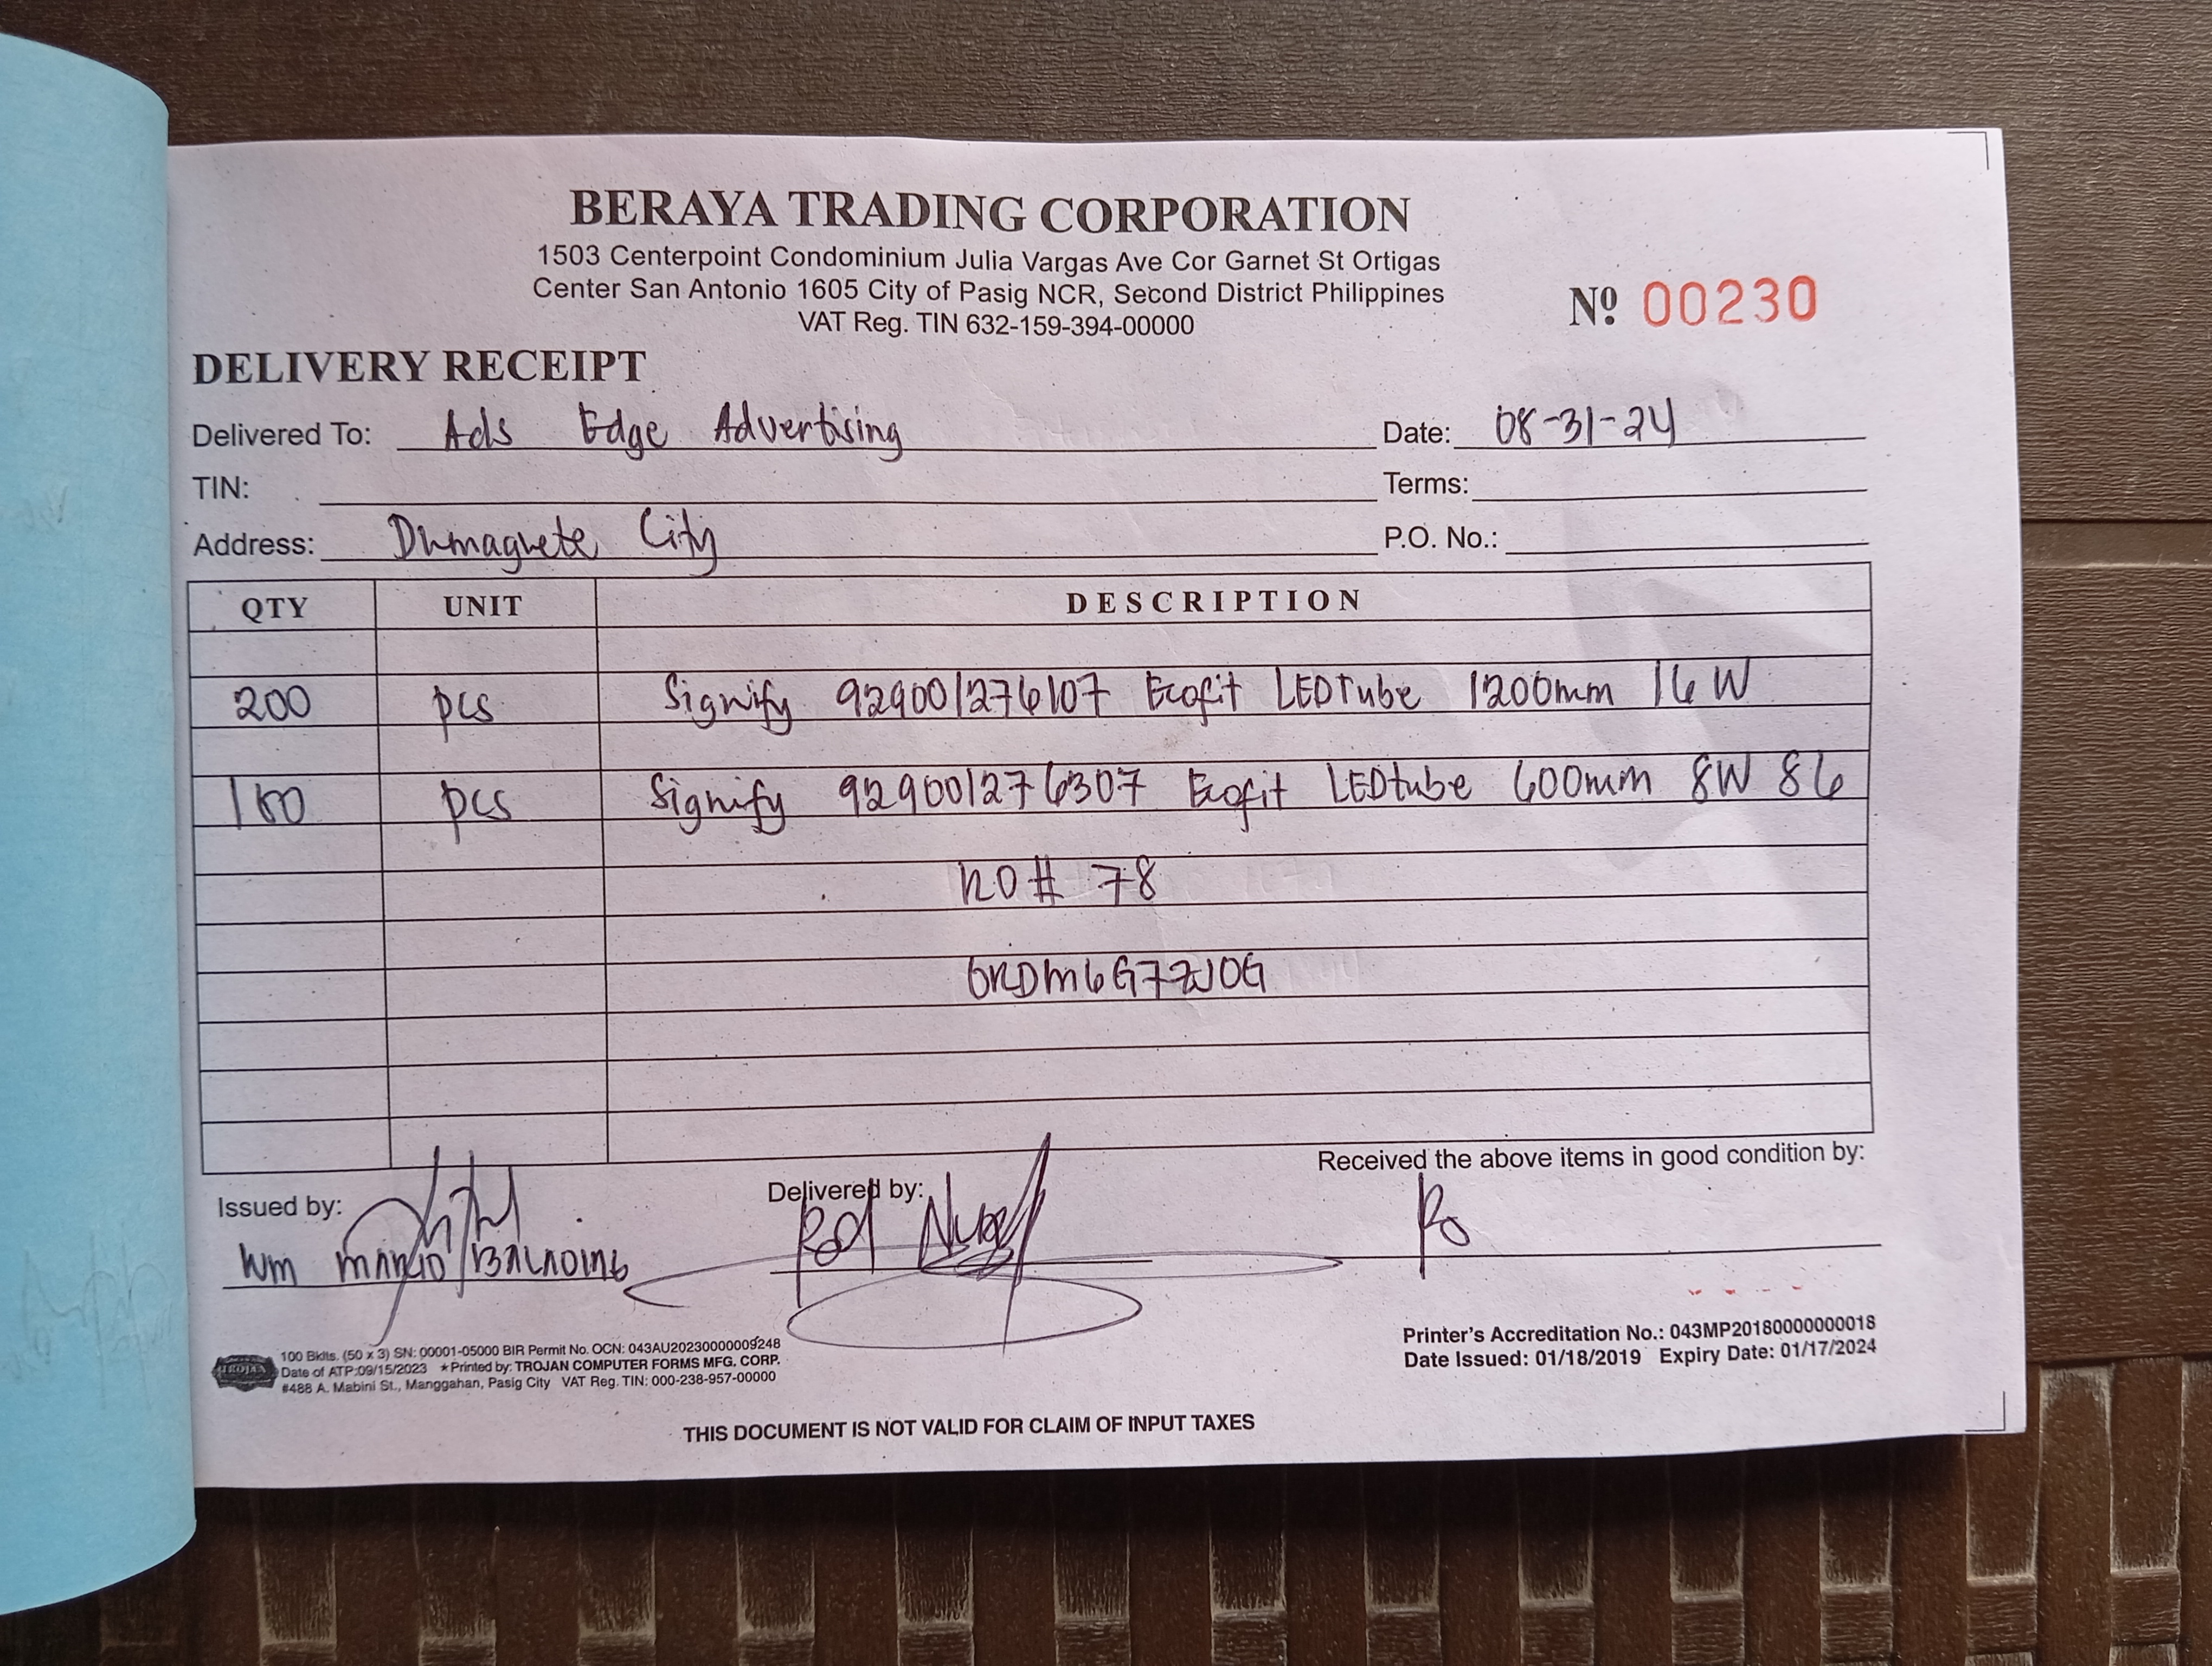 BERAYA TRADING CORPORATION
1503 Centerpoint Condominium Julia Vargas Ave Cor Garnet St Ortigas
Center San Antonio 1605 City of Pasig NCR, Second District Philippines
VAT Reg. TIN 632-159-394-00000
Nº 00230
DELIVERY RECEIPT
Delivered To: Ads Edge Advertising Date: 08-31-24
TIN: Terms:
Address: Dumaguete City P.O. No.:
QTY UNIT DESCRIPTION
200 pcs Signify 929001276107 Ecofit LEDTube 1200mm 16W
pcs Signify 929001276307 Ecofit LEDtube 600mm 8W 86
# 78
Received the above items in good condition by:
Issued by: Delivered by:
Wm
100 Bklts. (50 x 3) SN: 00001-05000 BIR Permit No. OCN: 043AU20230000009248
Date of ATP:09/15/2023 ★Printed by: TROJAN COMPUTER FORMS MFG. CORP.
#488 A. Mabini St., Manggahan, Pasig City VAT Reg. TIN: 000-238-957-00000
TROJAN
Printer's Accreditation No.: 043MP20180000000018
Date Issued: 01/18/2019 Expiry Date: 01/17/2024
THIS DOCUMENT IS NOT VALID FOR CLAIM OF INPUT TAXES